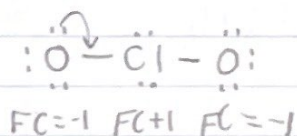 :Ö — C̈l - Ö:
FC=-1 FC+1 FC=-1